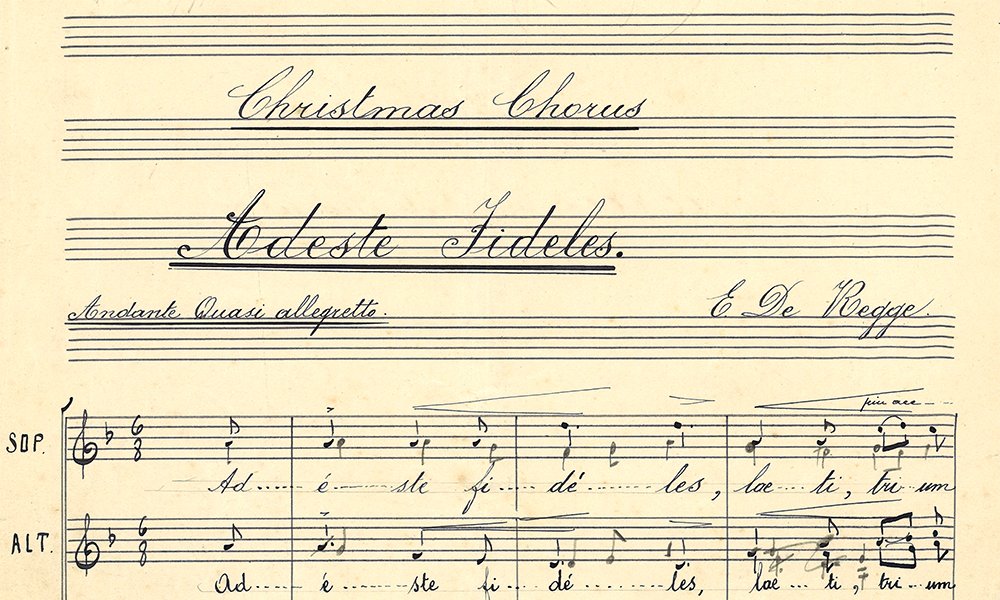 Christmas Chorus
Adeste Fideles.
Andante Quasi allegretto. E De Regge.
piu acc - - -
SOP.
Ad...... é...... ste fi.... dé........ les, lae.... ti, tri um
ALT.
Ad...... é...... ste fi.... dé........ les, lae.... ti, tri um